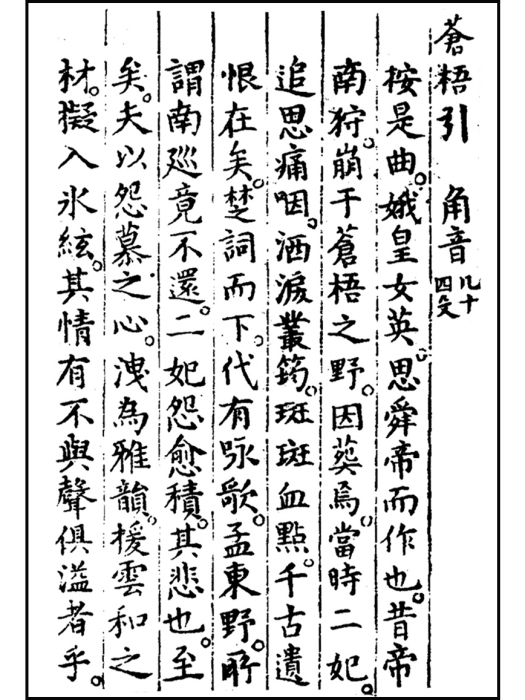 蒼梧引　角音　凡十四段
按是曲。娥皇女英。思舜帝而作也。昔帝
南狩。崩于蒼梧之野。因葬焉。當時二妃。
追思痛咽。洒淚叢筠。斑斑血點。千古遺
恨在矣。楚詞而下。代有咏歌。孟東野。所
謂南廵竟不還。二妃怨愈積。其悲也。至
矣。夫以怨慕之心。洩為雅韻。援雲和之
材。擬入氷絃。其情有不與聲俱溢者乎。